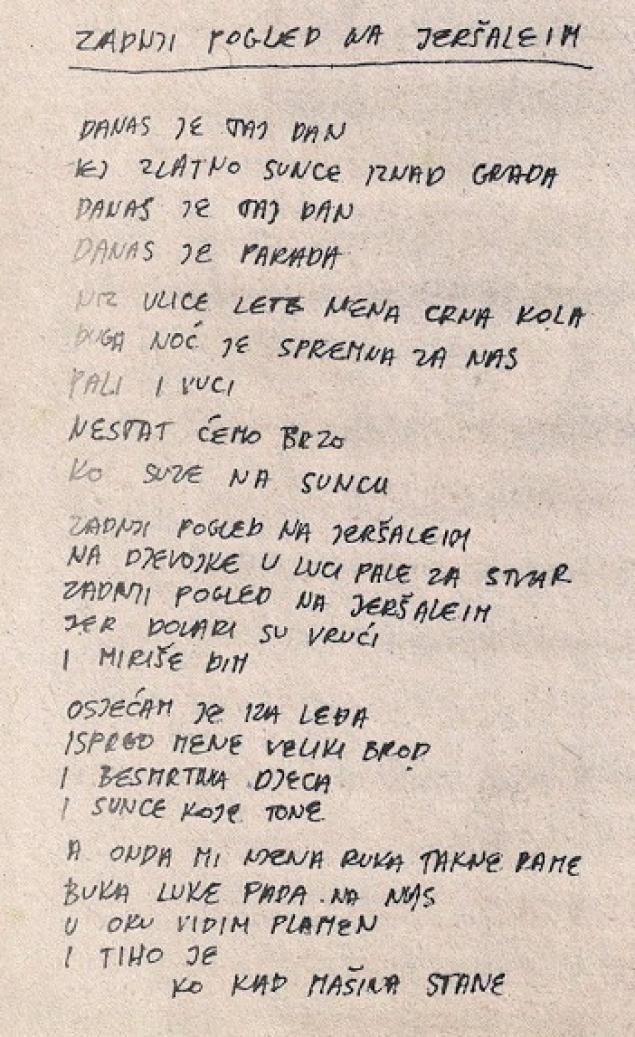 ZADNJI POGLED NA JERŠALEIM
DANAS JE TAJ DAN
I ZLATNO SUNCE IZNAD GRADA
DANAS JE TAJ DAN
DANAS JE PARADA
NIZ ULICE LETE NJENA CRNA KOLA
DUGA NOĆ JE SPREMNA ZA NAS
PALI I VUCI
NESTAT ĆEMO BRZO
KO SUZE NA SUNCU
ZADNJI POGLED NA JERŠALEIM
NA DJEVOJKE U LUCI PALE ZA STVAR
ZADNJI POGLED NA JERŠALEIM
JER DOLARI SU VRUĆI
I MIRIŠE DIM
OSJEĆAM JE IZA LEĐA
ISPRED MENE VELIKI BROD
I BESMRTNA DJECA
I SUNCE KOJE TONE
A ONDA MI NJENA RUKA TAKNE RAME
BUKA LUKE PADA NA NAS
U OKU VIDIM PLAMEN
I TIHO JE
KO KAD MAŠINA STANE